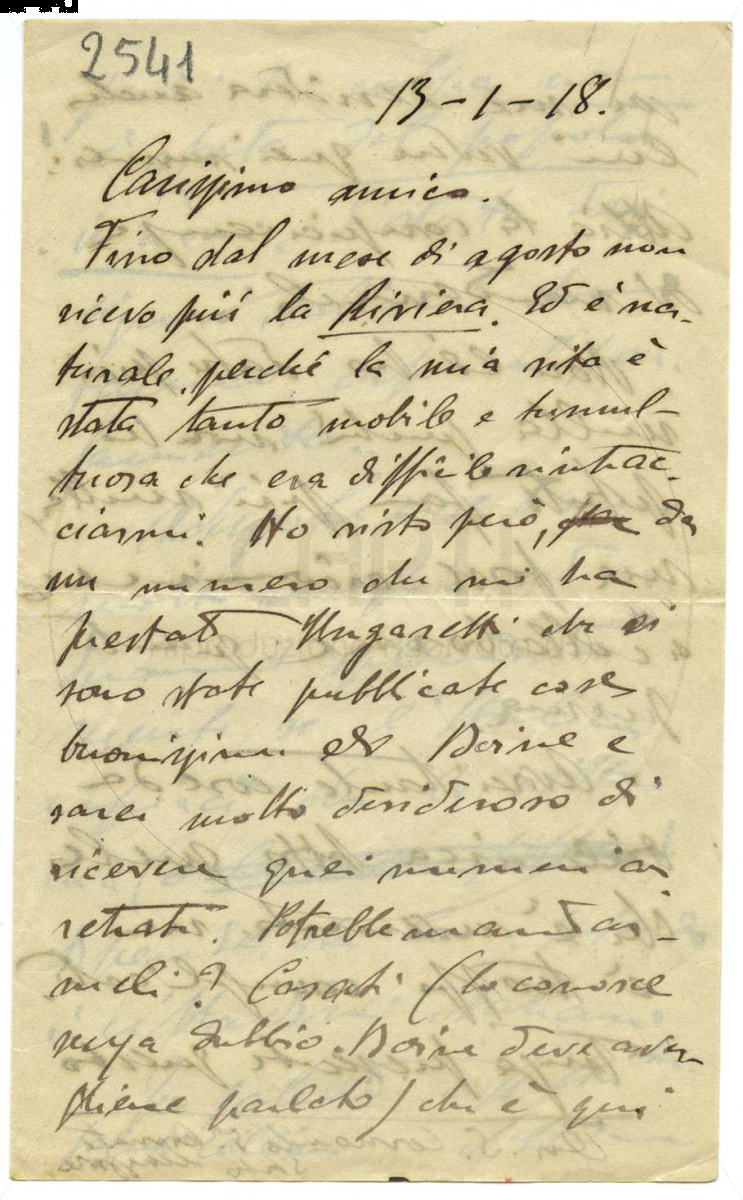 2541
13-1-18.
Carissimo amico.
Fino dal mese di agosto non
ricevo più la Riviera. Ed è na-
turale, perché la mia vita è
stata tanto mobile e tumul-
tuosa che era difficile rintrac-
ciarmi. Ho visto però, da
un numero che mi ha
prestato Ungaretti che si
sono state pubblicate cose
buonissime di Boine e
sarei molto desideroso di
ricevere quei numeri ar
retrati. Potrebbe mandar-
meli? Casati (lo conosce
senza dubbio. Boine deve aver
gliene parlato) che è qui